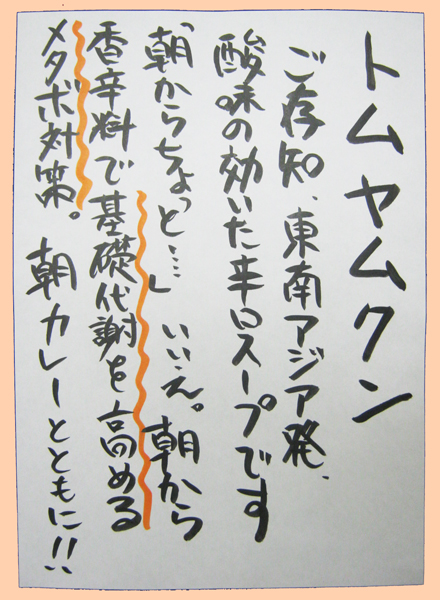 トムヤムクン
ご存知、東南アジア発、
酸味の効いた辛口スープです
「朝からちょっと…」いいえ。朝から
香辛料で基礎代謝を高める
メタボ対策。朝カレーとともに!!